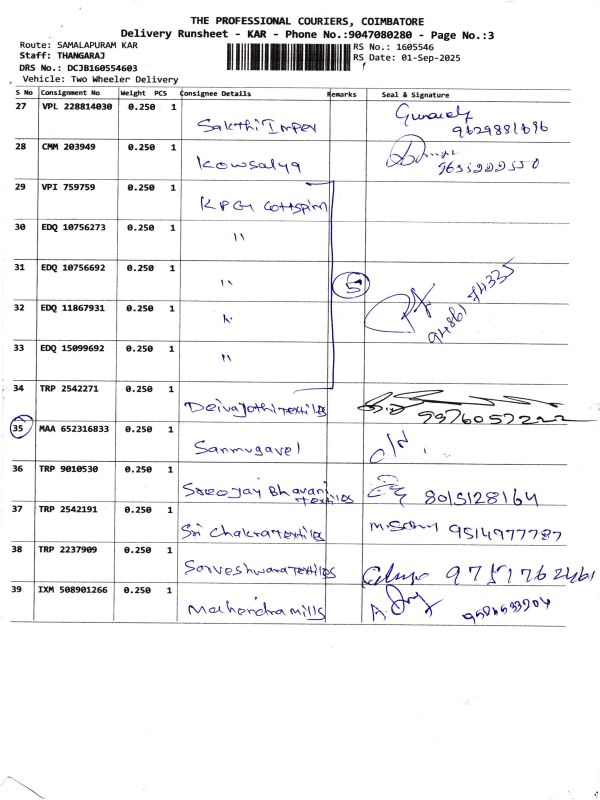 THE PROFESSIONAL COURIERS, COIMBATORE
Delivery Runsheet - KAR - Phone No.:9047080280 - Page No.:3
Route: SAMALAPURAM KAR RS No.: 1605546
Staff: THANGARAJ RS Date: 01-Sep-2025
DRS No.: DCJB160554603
Vehicle: Two Wheeler Delivery
S No Consignment No Weight PCS Consignee Details Remarks Seal & Signature
27 VPL 228814030 0.250 1 Sakthi Impex 9629881696
28 CMM 203949 0.250 1 Kowsalya
29 VPI 759759 0.250 1 KPG Cottspin
30 EDQ 10756273 0.250 1 "
31 EDQ 10756692 0.250 1 " 5
32 EDQ 11867931 0.250 1 " 94861 74335
33 EDQ 15099692 0.250 1 "
34 TRP 2542271 0.250 1 Deivajothi textiles 9976057222
35 MAA 652316833 0.250 1 Sanmugavel
36 TRP 9010530 0.250 1 Sree Jay Bhavani textiles 8015128164
37 TRP 2542191 0.250 1 Sri Chakra textiles 9514977787
38 TRP 2237909 0.250 1 Sarveshwara textiles 9751762461
39 IXM 508901266 0.250 1 Mahendra mills